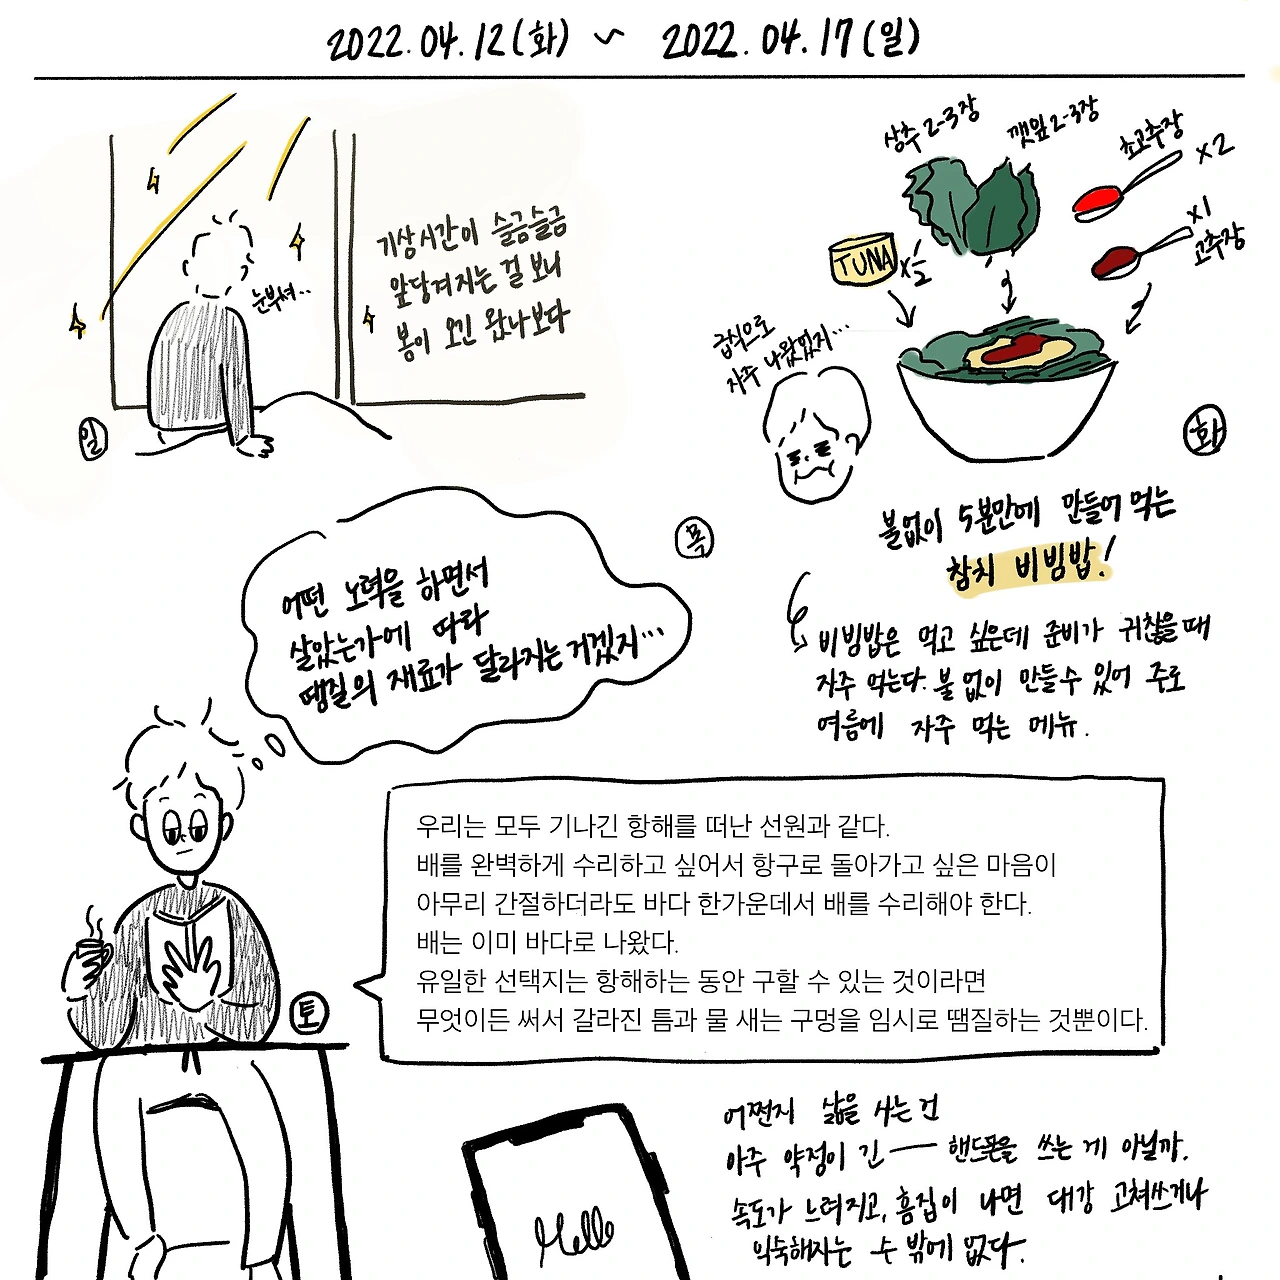 2022.04.12(화) ~ 2022.04.17(일)
기상시간이 슬금슬금
앞당겨지는 걸 보니
봄이 오긴 왔나보다
눈부셔..
일
상추 2-3장
깻잎 2-3장
초고추장
x2
x1
고추장
TUNA
x½
급식으로
자주 나왔었지...
화
불없이 5분만에 만들어 먹는
참치 비빔밥!
비빔밥은 먹고 싶은데 준비가 귀찮을 때
자주 먹는다. 불 없이 만들 수 있어 주로
여름에 자주 먹는 메뉴.
목
어떤 노력을 하면서
살았는가에 따라
땜질의 재료가 달라지는거겠지...
토
우리는 모두 기나긴 항해를 떠난 선원과 같다.
배를 완벽하게 수리하고 싶어서 항구로 돌아가고 싶은 마음이
아무리 간절하더라도 바다 한가운데서 배를 수리해야 한다.
배는 이미 바다로 나왔다.
유일한 선택지는 항해하는 동안 구할 수 있는 것이라면
무엇이든 써서 갈라진 틈과 물 새는 구멍을 임시로 땜질하는 것뿐이다.
어쩐지 삶을 사는 건
아주 약정이 긴 ── 핸드폰을 쓰는 게 아닐까.
속도가 느려지고, 흠집이 나면 대강 고쳐쓰거나
익숙해지는 수 밖에 없다.
Hello